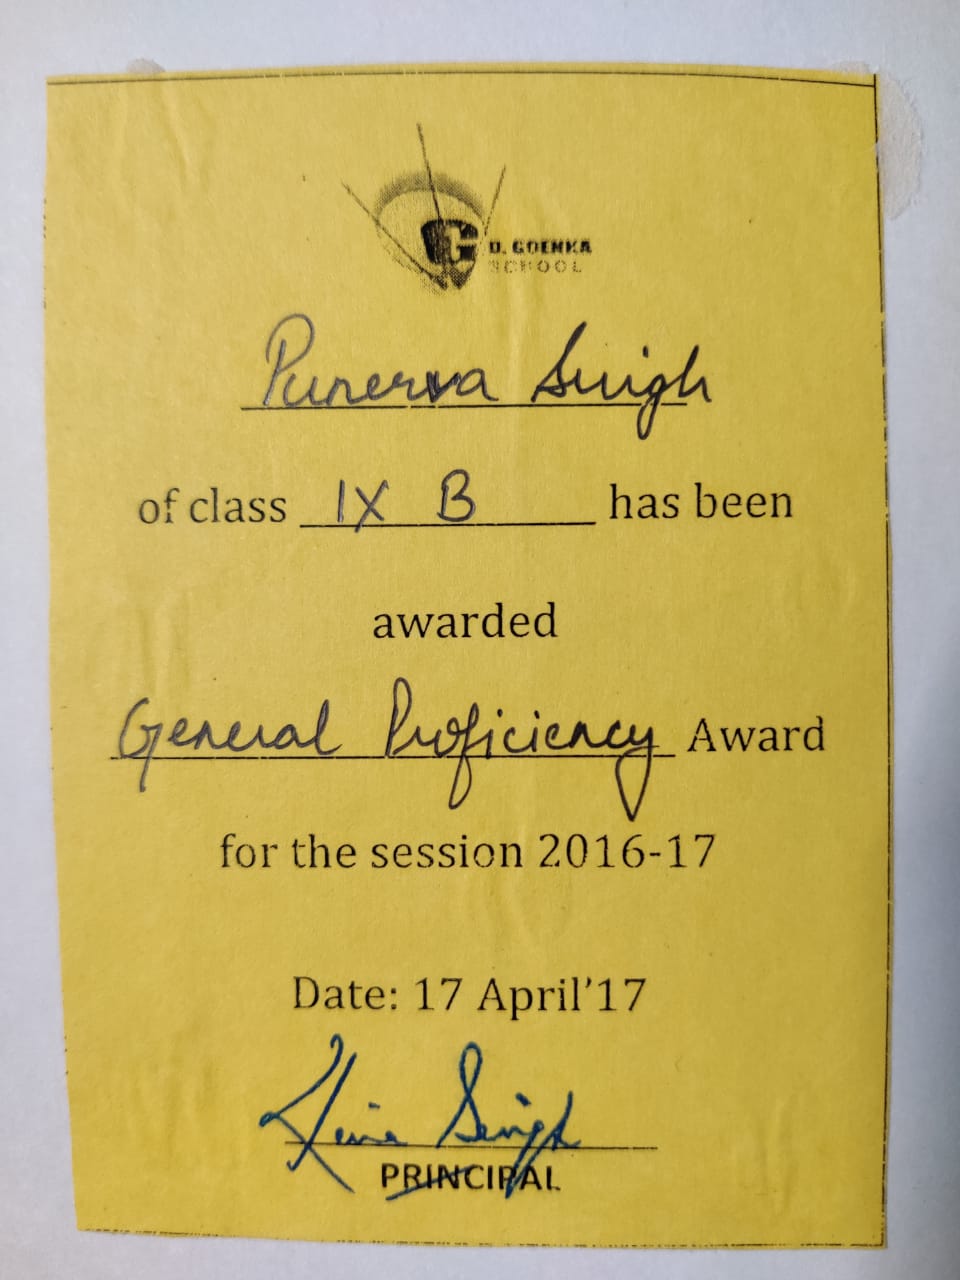 G D. GOENKA
SCHOOL
Punerva Singh
of class IX B has been
awarded
General Proficiency Award
for the session 2016-17
Date: 17 April'17
Singh
PRINCIPAL